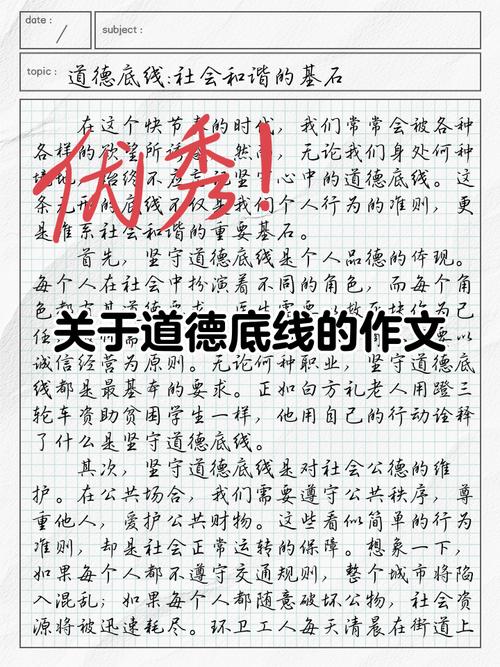 date :
subject :
topic : 道德底线:社会和谐的基石
在这个快节奏的时代，我们常常会被各种
各样的欲望所 然而，无论我们身处何种
境地，始终不 坚 心中的道德底线。这
条无形的底线不仅是我们个人行为的准则，更
是维系社会和谐的重要基石。
优秀!
首先，坚守道德底线是个人品德的体现。
每个人在社会中扮演着不同的角色，而每个角
色都有其道德要求。医生需要以救死扶伤为己
关于道德底线的作文
任 要以
诚信经营为原则。无论何种职业，坚守道德底
线都是最基本的要求。正如白方礼老人用蹬三
轮车资助贫困学生一样，他用自己的行动诠释
了什么是坚守道德底线。
其次，坚守道德底线是对社会公德的维
护。在公共场合，我们需要遵守公共秩序，尊
重他人，爱护公共财物。这些看似简单的行为
准则，却是社会正常运转的保障。想象一下，
如果每个人都不遵守交通规则，整个城市将陷
入混乱；如果每个人都随意破坏公物，社会资
源将被迅速耗尽。环卫工人每天清晨在街道上